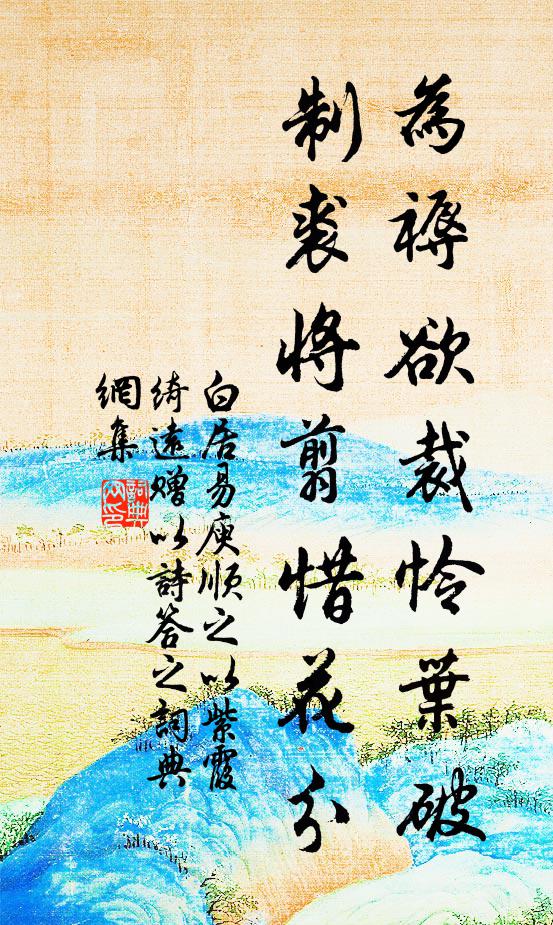 為褥欲裁憐葉破
制裘將剪惜花分
白居易庾順之以紫霞
綺遠贈以詩答之詞典
網集